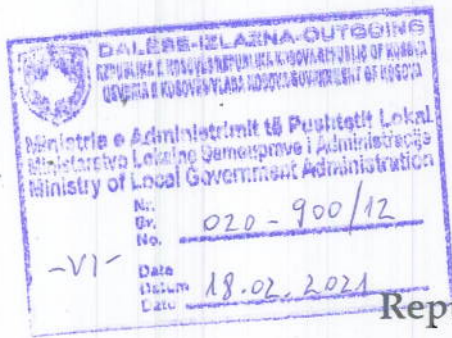 DALESE-IZLAZNA-OUTGOING
REPUBLIKA E KOSOVËS/REPUBLIKA KOSOVA/REPUBLIC OF KOSOVA
QEVERIA E KOSOVËS/VLADA KOSOVA/GOVERNMENT OF KOSOVA
Ministria e Administrimit të Pushtetit Lokal
Ministarstvo Lokalne Samouprave i Administracije
Ministry of Local Government Administration
Nr.
Br.
No. 020-900/12
-VI-
Data
Datum
Date 18.02.2021
Rep